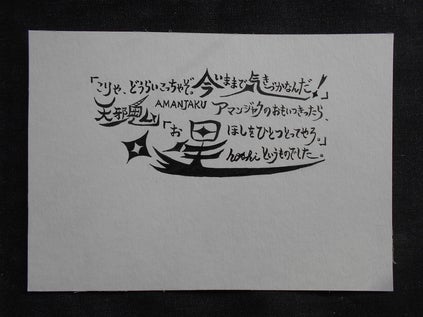 「こりゃ、どうらいこっちゃぞ。今いままで気きづかなんだ!」
天邪鬼 AMANJAKU アマンジャクのおもいつきったら、
「お星 ほしをひとつとってやろ。
hoshi というものでした。